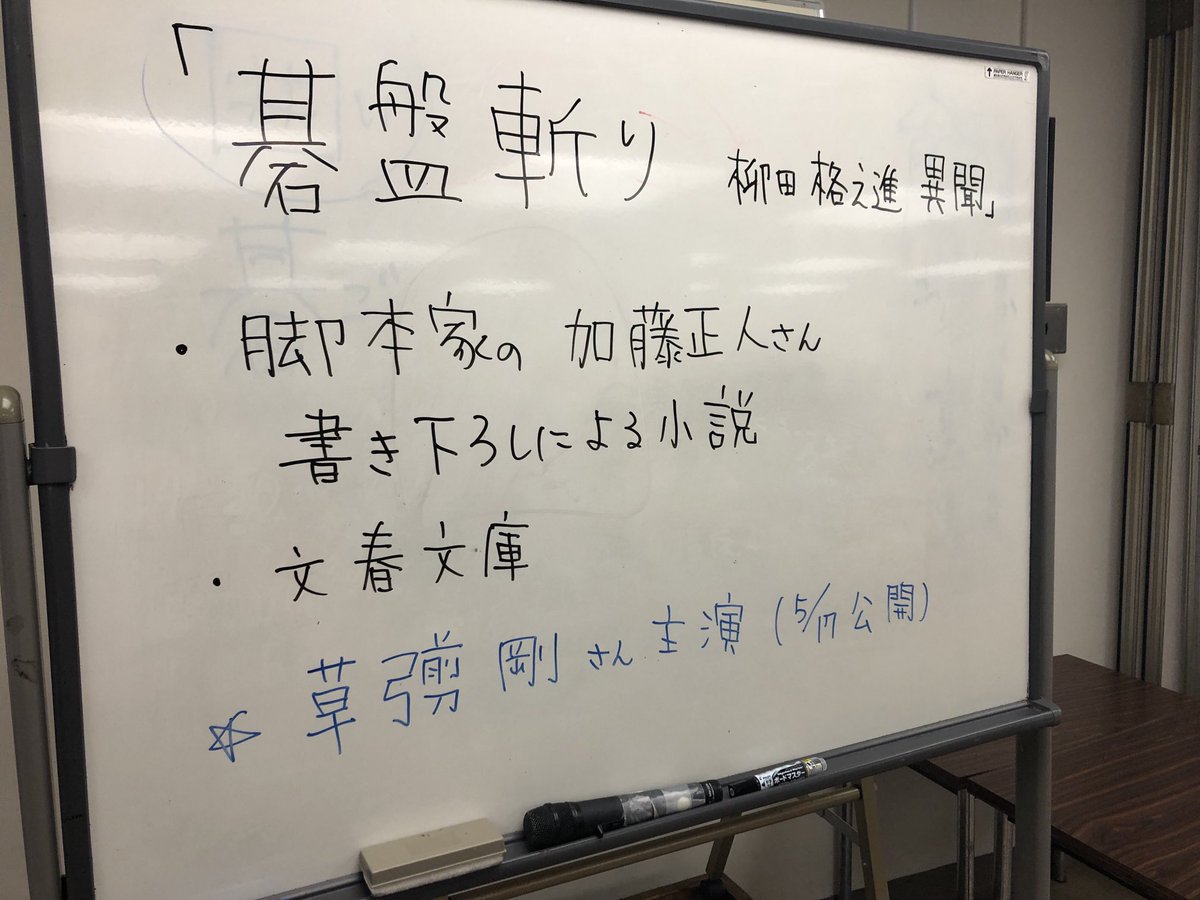 「碁盤斬り 柳田格之進異聞」
・脚本家の 加藤正人さん
書き下ろしによる小説
・文春文庫
☆ 草彅剛さん主演 (5/17公開)
PAPER HANGER
ボードマスター